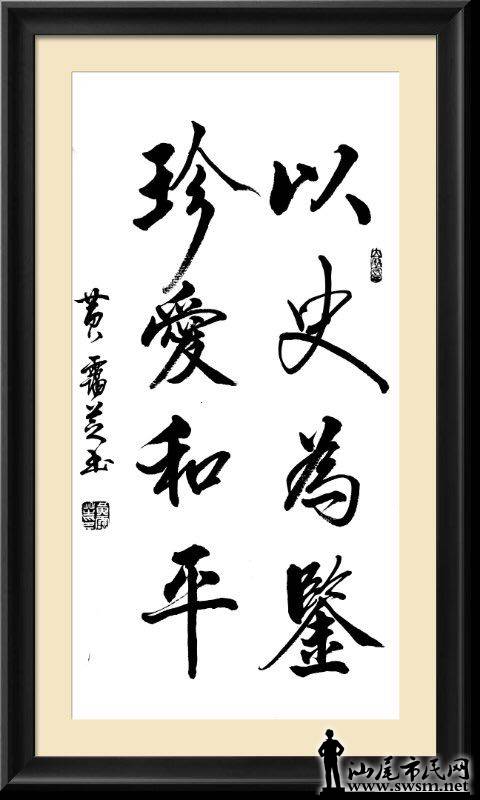 以史為鑒
珍愛和平
黄芝书
汕尾市民网
www.swsm.net